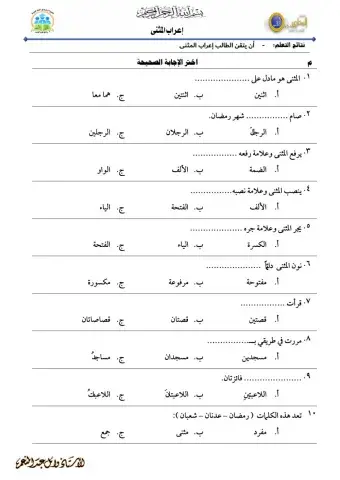 بسم الله الرحمن الرحيم
إعراب المثنى
نتائج التعلم: - أن يتقن الطالب إعراب المثنى
م اختر الإجابة الصحيحة
١٠ المثنى هو مادل على .....................
أ. اثنين ب. اثنتين ج. هما معا
٢٠ صام ................ شهر رمضان.
أ. الرجلُ ب. الرجلان ج. الرجلين
٣٠ يرفع المثنى وعلامة رفعه .................
أ. الضمة ب. الألف ج. الواو
٤٠ ينصب المثنى وعلامة نصبه................
أ. الألف ب. الفتحة ج. الياء
٥٠ يجر المثنى وعلامة جره ....................
أ. الكسرة ب. الياء ج. الفتحة
٦٠ نون المثنى دائمًا .....................
أ. مفتوحة ب. مرفوعة ج. مكسورة
٧٠ قرأت .................
أ. قصتين ب. قصتان ج. قصاصاتان
٨٠ مررت في طريقي بـ.................
أ. مسجدين ب. مسجدان ج. مساجدُ
٩٠ ...................... فائزتان.
أ. اللاعبتينِ ب. اللاعبتانِ ج. اللاعبكُ
١٠ تعد هذه الكلمات ( رمضان – عدنان – شعبان ):
أ. مفرد ب. مثنى ج. جمع